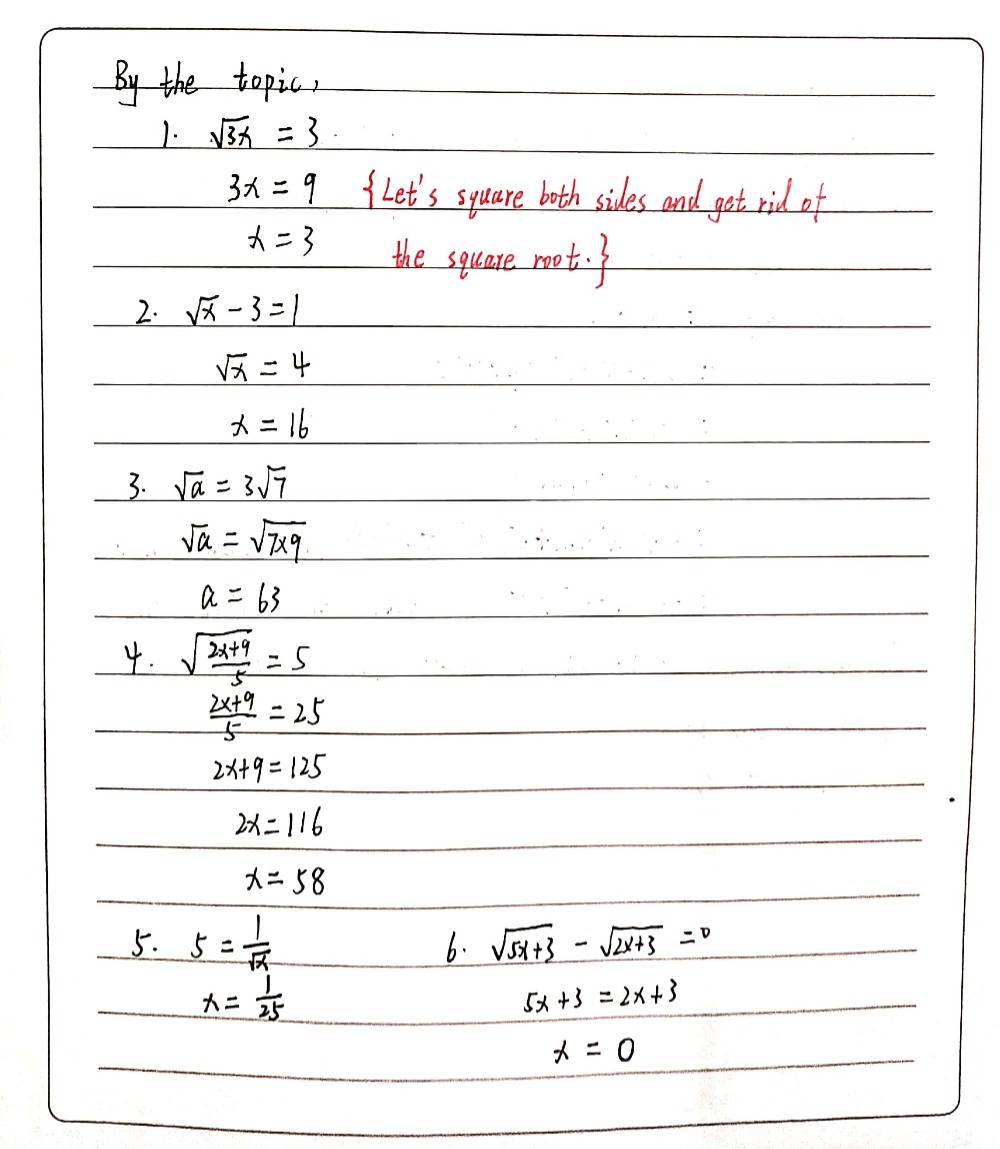 By the topic,
1. √3x = 3
3x = 9 {Let's square both sides and get rid of
x = 3 the square root.}
2. √x - 3 = 1
√x = 4
x = 16
3. √a = 3√7
√a = √7×9
a = 63
4. √(2x+9)/5 = 5
(2x+9)/5 = 25
2x+9 = 125
2x = 116
x = 58
5. 5 = 1/√x
x = 1/25
6. √5x+3 - √2x+3 = 0
5x+3 = 2x+3
x = 0